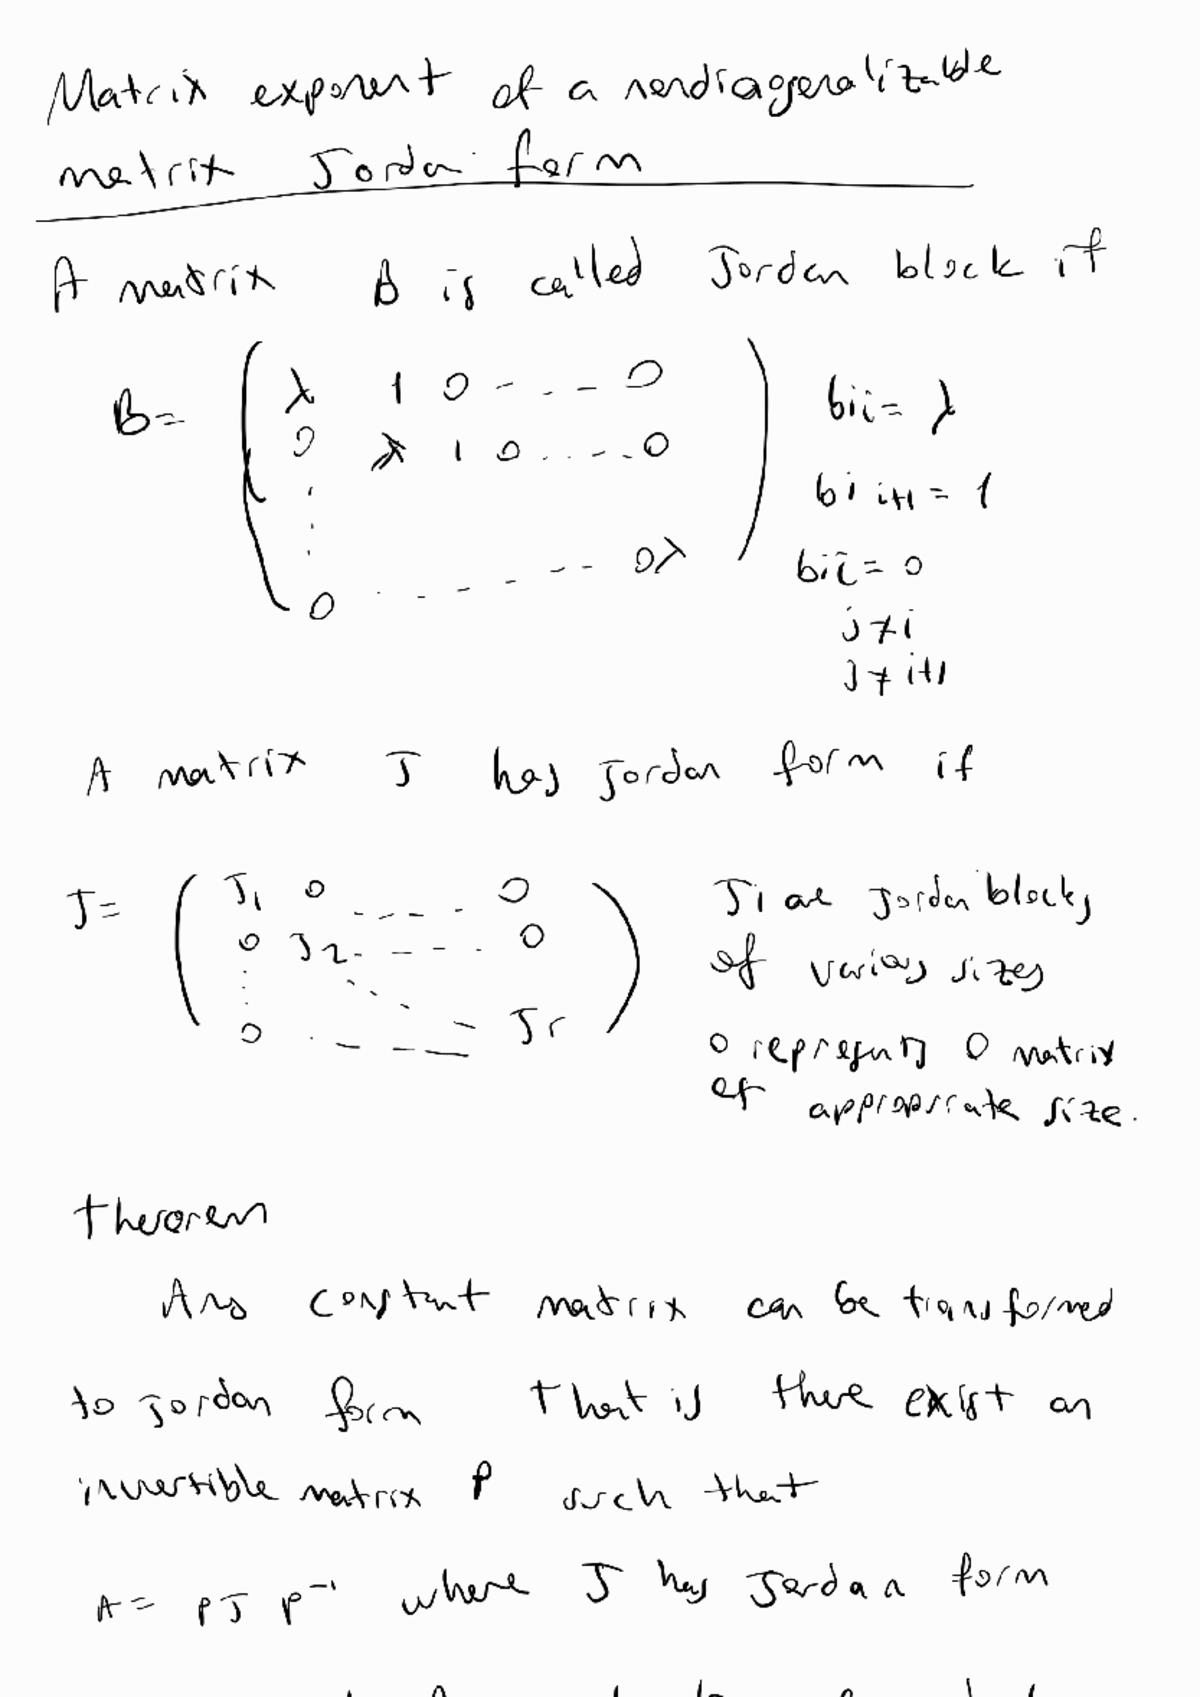 Matrix exponent of a nondiagonalizable
matrix Jordan form
A matrix B is called Jordan block if
B = ( λ 1 0 - . . - 0
0 λ 1 0 . . . - . . 0
.
.
.
0 . - - - - - 0 λ )
bii = λ
bi i+1 = 1
bij = 0
j ≠ i
j ≠ i+1
A matrix J has Jordan form if
J = ( J1 0 - - - - 0
0 J2 - - - . 0
0 . - - - Jr )
Ji are Jordan blocks
of various sizes
0 represents 0 matrix
of appropriate size.
Theorem
Any constant matrix can be transformed
to Jordan form That is there exist an
invertible matrix P such that
A = P J P⁻¹ where J has Jordan form